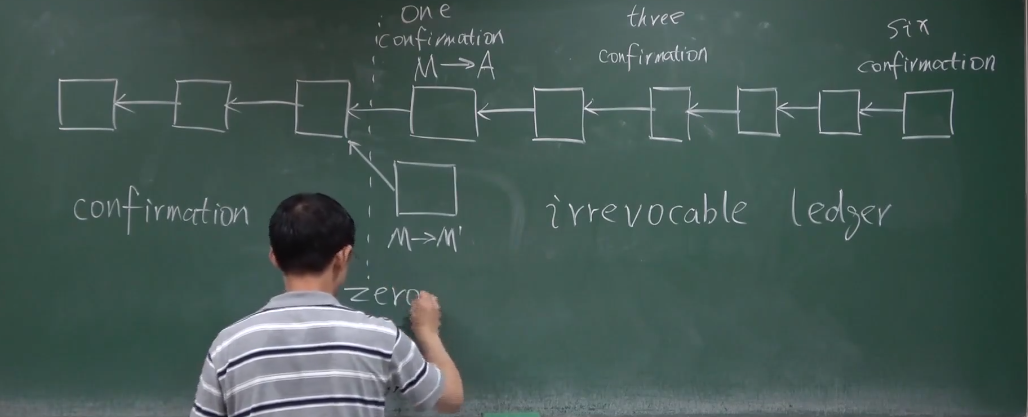 one
confirmation
M→A
three
confirmation
six
confirmation
confirmation
M→M'
irrevocable ledger
zero